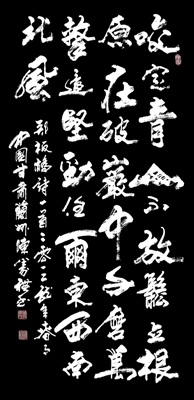 咬定青山不放鬆立根
原在破巖中千磨萬
擊還堅勁任爾東西南
北風
鄭板橋詩一首二零一三年春
中國甘肅蘭州陳